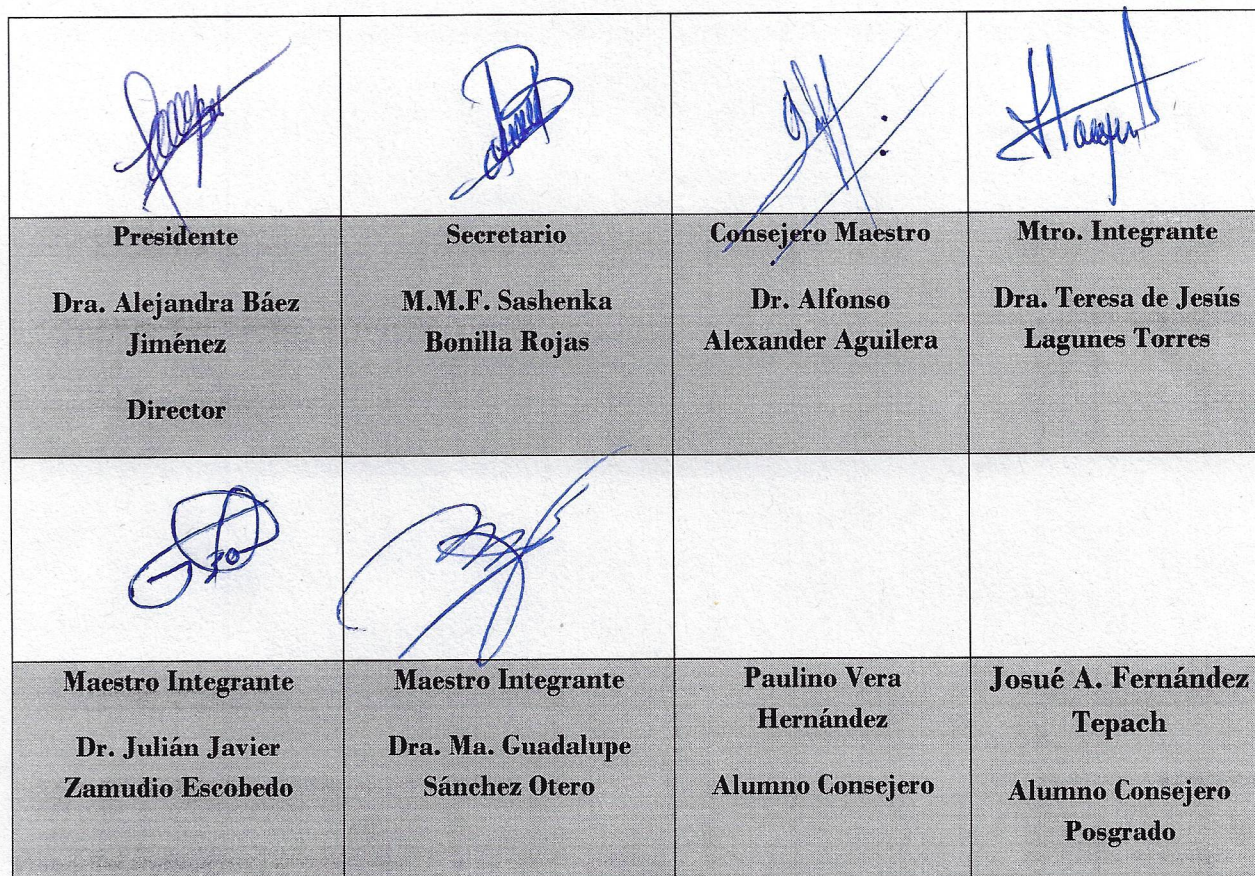 Presidente
Dra. Alejandra Báez
Jiménez
Director
Secretario
M.M.F. Sashenka
Bonilla Rojas
Consejero Maestro
Dr. Alfonso
Alexander Aguilera
Mtro. Integrante
Dra. Teresa de Jesús
Lagunes Torres
Maestro Integrante
Dr. Julián Javier
Zamudio Escobedo
Maestro Integrante
Dra. Ma. Guadalupe
Sánchez Otero
Paulino Vera
Hernández
Alumno Consejero
Josué A. Fernández
Tepach
Alumno Consejero
Posgrado